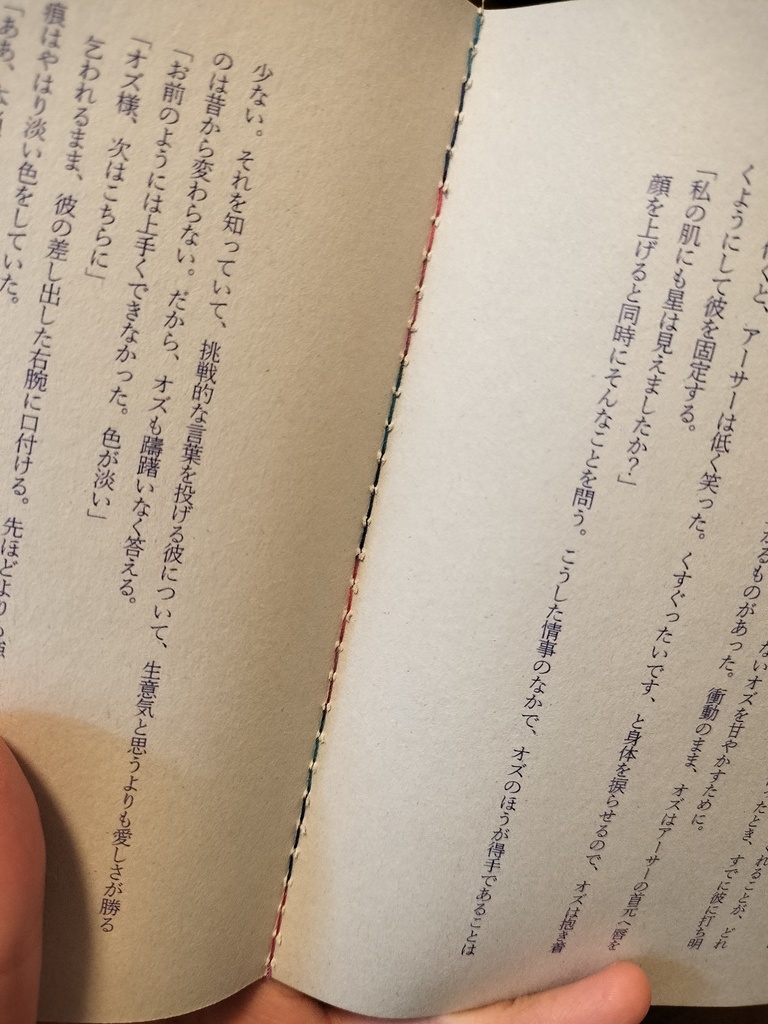 れることが、どれ
ったとき、すでに彼に打ち明
ないオズを甘やかすために。
かるものがあった。衝動のまま、オズはアーサーの首元へ唇を
くと、アーサーは低く笑った。くすぐったいです、と身体を捩らせるので、オズは抱き着
くようにして彼を固定する。
「私の肌にも星は見えましたか？」
顔を上げると同時にそんなことを問う。こうした情事のなかで、オズのほうが得手であることは
少ない。それを知っていて、挑戦的な言葉を投げる彼について、生意気と思うよりも愛しさが勝る
のは昔から変わらない。だから、オズも躊躇いなく答える。
「お前のようには上手くできなかった。色が淡い」
「オズ様、次はこちらに」
乞われるまま、彼の差し出した右腕に口付ける。先ほどよりも
痕はやはり淡い色をしていた。
「ああ、